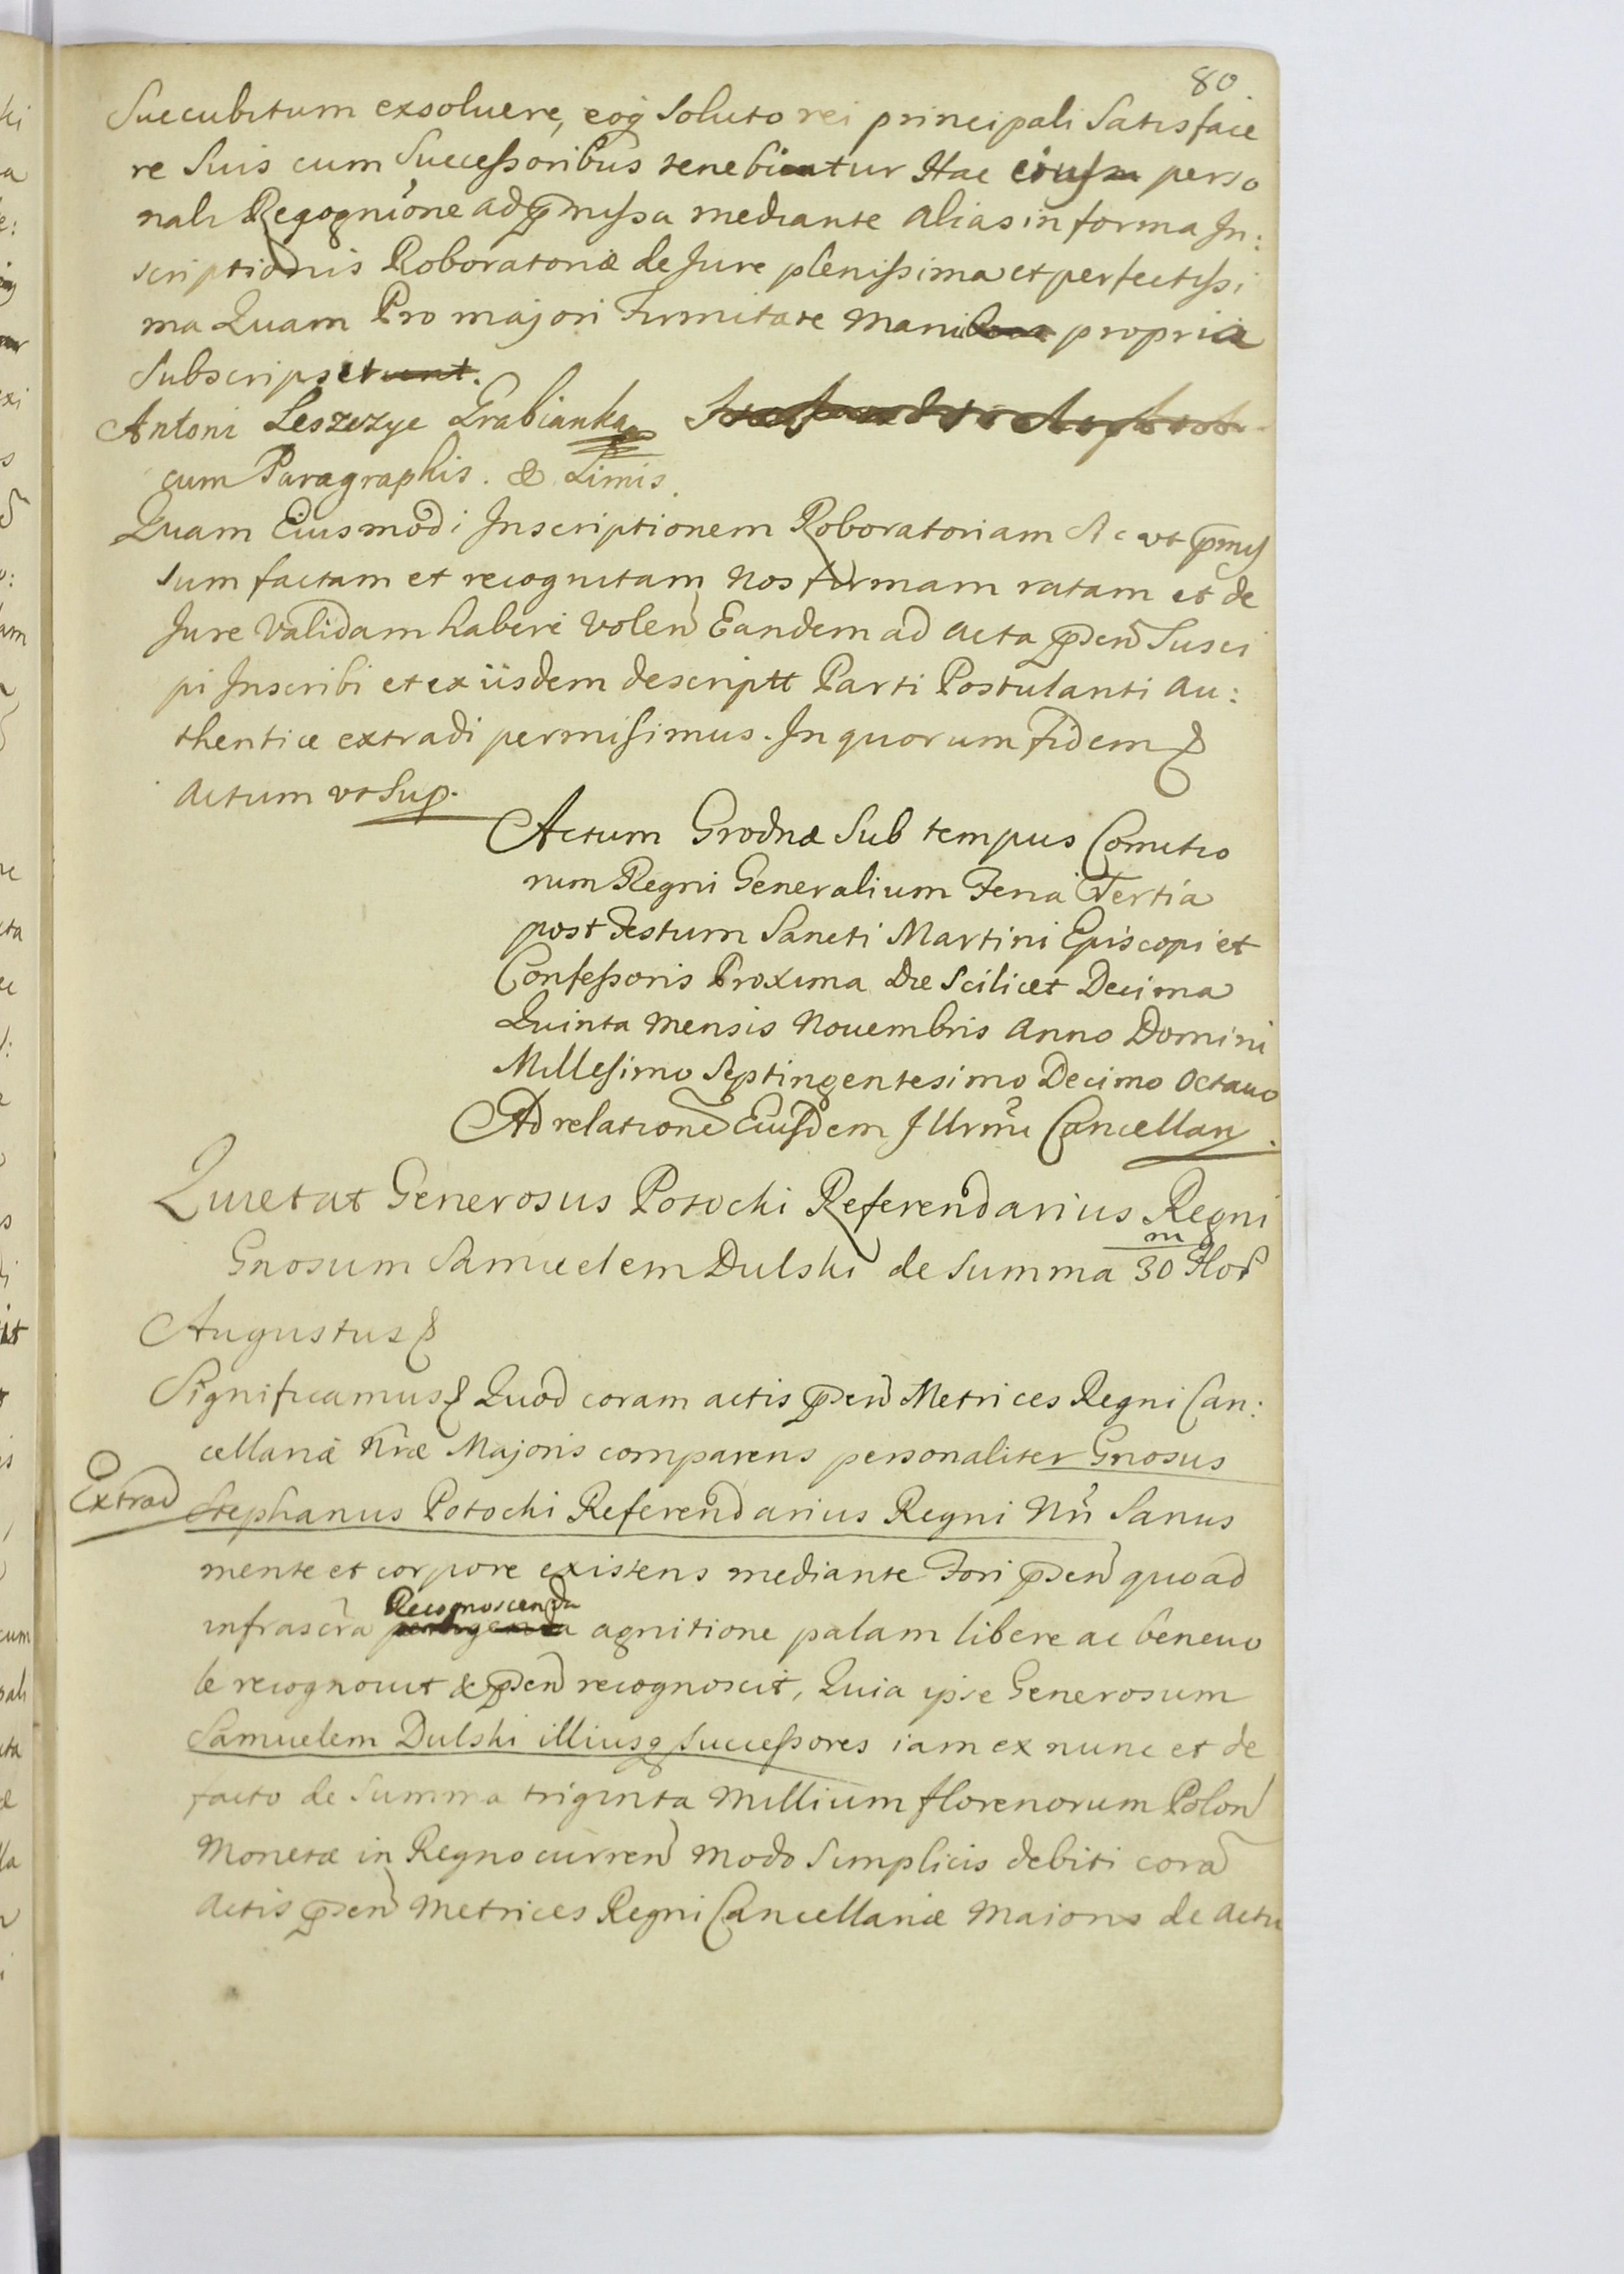 80
Succubitum exsoluere, eoq soluto rei principali Satisface
re Suis cum Successoribus tenebitur Hac eius perso
nali Regognione ad pmissa mediante alias in forma In:
scriptionis Roboratoriæ de Jure plenissima et perfectissi
ma Quam Pro majori Firmitate Manu propria
Subscripsit.
Antoni Leszczyc Grabianka
cum Paragraphis. & Limis.
Quam Eiusmodi Inscriptionem Roboratoriam Ac ut pmis
sum factam et recognitam Nos firmam ratam et de
Jure Validam habere volen Eandem ad acta psen Susci
pi Inscribi et ex iisdem descriptt Parti Postulanti au:
thentice extradi permisimus. In quorum fidem &
Actum ut Sup.
Actum Grodnæ Sub tempus Comitio
rum Regni Generalium Feria Tertia
post Festum Sancti Martini Episcopi et
Confessoris Proxima Die Scilicet Decima
Quinta Mensis Nouembris Anno Domini
Millesimo Septingentesimo Decimo Octauo
Ad relatione Eiusdem Illrmi Cancellary.
Quietat Generosus Potocki Referendarius Regni
Gnosum Samuelem Dulski de Summa 30 m Flor
Augustus &
Significamus & Quod coram actis psen Metrices Regni Can:
cellariæ Nræ Majoris comparens personaliter Gnosus
Extrad
Stephanus Potocki Referendarius Regni Nri Sanus
mente et corpore existens mediante Fori psen quoad
Recognoscenda
infrascra agnitione palam libere ac beneuo
le recognouit & psen recognoscit, Quia ipse Generosum
Samuelem Dulski illiusq successores iam ex nunc et de
facto de Summa triginta Millium florenorum Polon
Monetæ in Regno curren modo Simplicis debiti cora
Actis psen Metrices Regni Cancellariæ Maioris de Actu